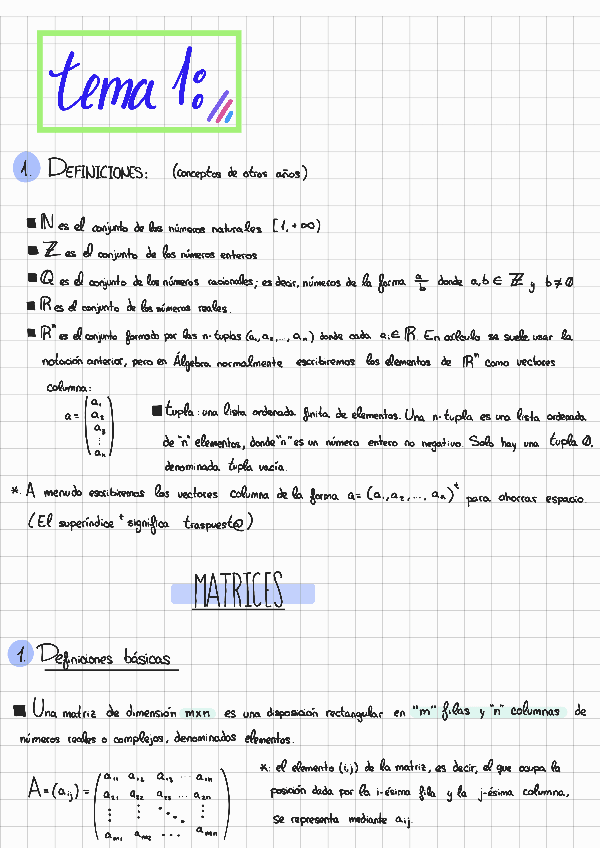 tema 1:
1. DEFINICIONES: (conceptos de otros años)
■ ℕ es el conjunto de los números naturales [1, +∞)
■ ℤ es el conjunto de los números enteros
■ ℚ es el conjunto de los números racionales; es decir, números de la forma a/b donde a,b ∈ ℤ y b ≠ 0
■ ℝ es el conjunto de los números reales.
■ ℝⁿ es el conjunto formado por las n-tuplas (a₁, a₂, ..., aₙ) donde cada aᵢ ∈ ℝ. En cálculo se suele usar la
notación anterior, pero en Álgebra normalmente escribiremos los elementos de ℝⁿ como vectores
columna:
a = (a₁ a₂ a₃ ⋮ aₙ)
■ tupla: una lista ordenada finita de elementos. Una n-tupla es una lista ordenada
de "n" elementos, donde "n" es un número entero no negativo. Solo hay una tupla 0,
denominada tupla vacía.
*. A menudo escribiremos los vectores columna de la forma a = (a₁, a₂, ..., aₙ)ᵗ para ahorrar espacio
(El superíndice ᵗ significa traspuest@)
MATRICES
1. Definiciones básicas
■ Una matriz de dimensión mxn es una disposición rectangular en "m" filas y "n" columnas de
números reales o complejos, denominados elementos.
A = (aᵢⱼ) =
a₁₁ a₁₂ a₁₃ ... a₁ₙ
a₂₁ a₂₂ a₂₃ ... a₂ₙ
⋮ ⋮ ⋱ ⋮
aₘ₁ aₘ₂ ... aₘₙ
*: el elemento (i,j) de la matriz, es decir, el que ocupa la
posición dada por la i-ésima fila y la j-ésima columna,
se representa mediante aᵢⱼ.